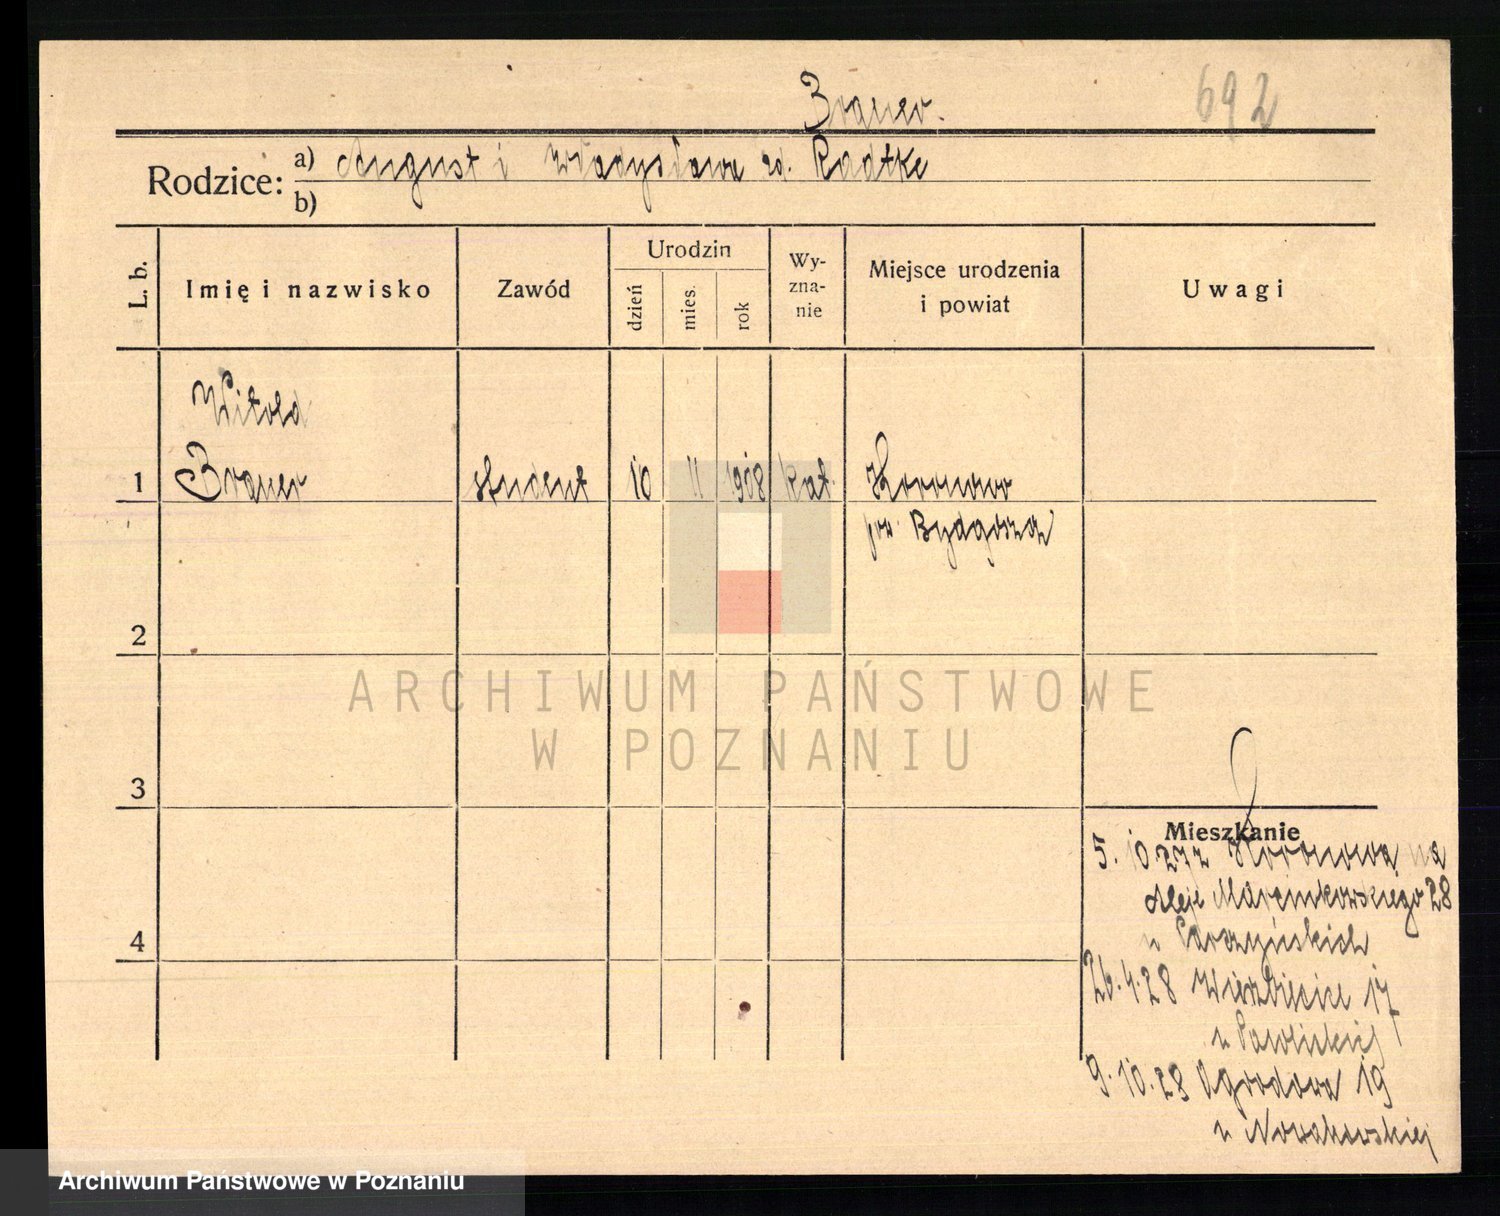 Brauer.
692
Rodzice: a) August i Władysława zd. Radtke
b)
L. b.
Imię i nazwisko
Zawód
Urodzin
dzień
mies.
rok
Wy-
zna-
nie
Miejsce urodzenia
i powiat
Uwagi
Witold
1 Brauer student 10 11 1908 kat. Koronowo
pow. Bydgoszcz
2
3
4
Mieszkanie
5.10.27 z Koronowa na
Aleje Marcinkowskiego 28
u
26.4.28 Wierzbięcice 17
u Pawlickiej
9.10.28 Ogrodowa 19
u Nowakowskiej
ARCHIWUM PAŃSTWOWE
W POZNANIU
Archiwum Państwowe w Poznaniu